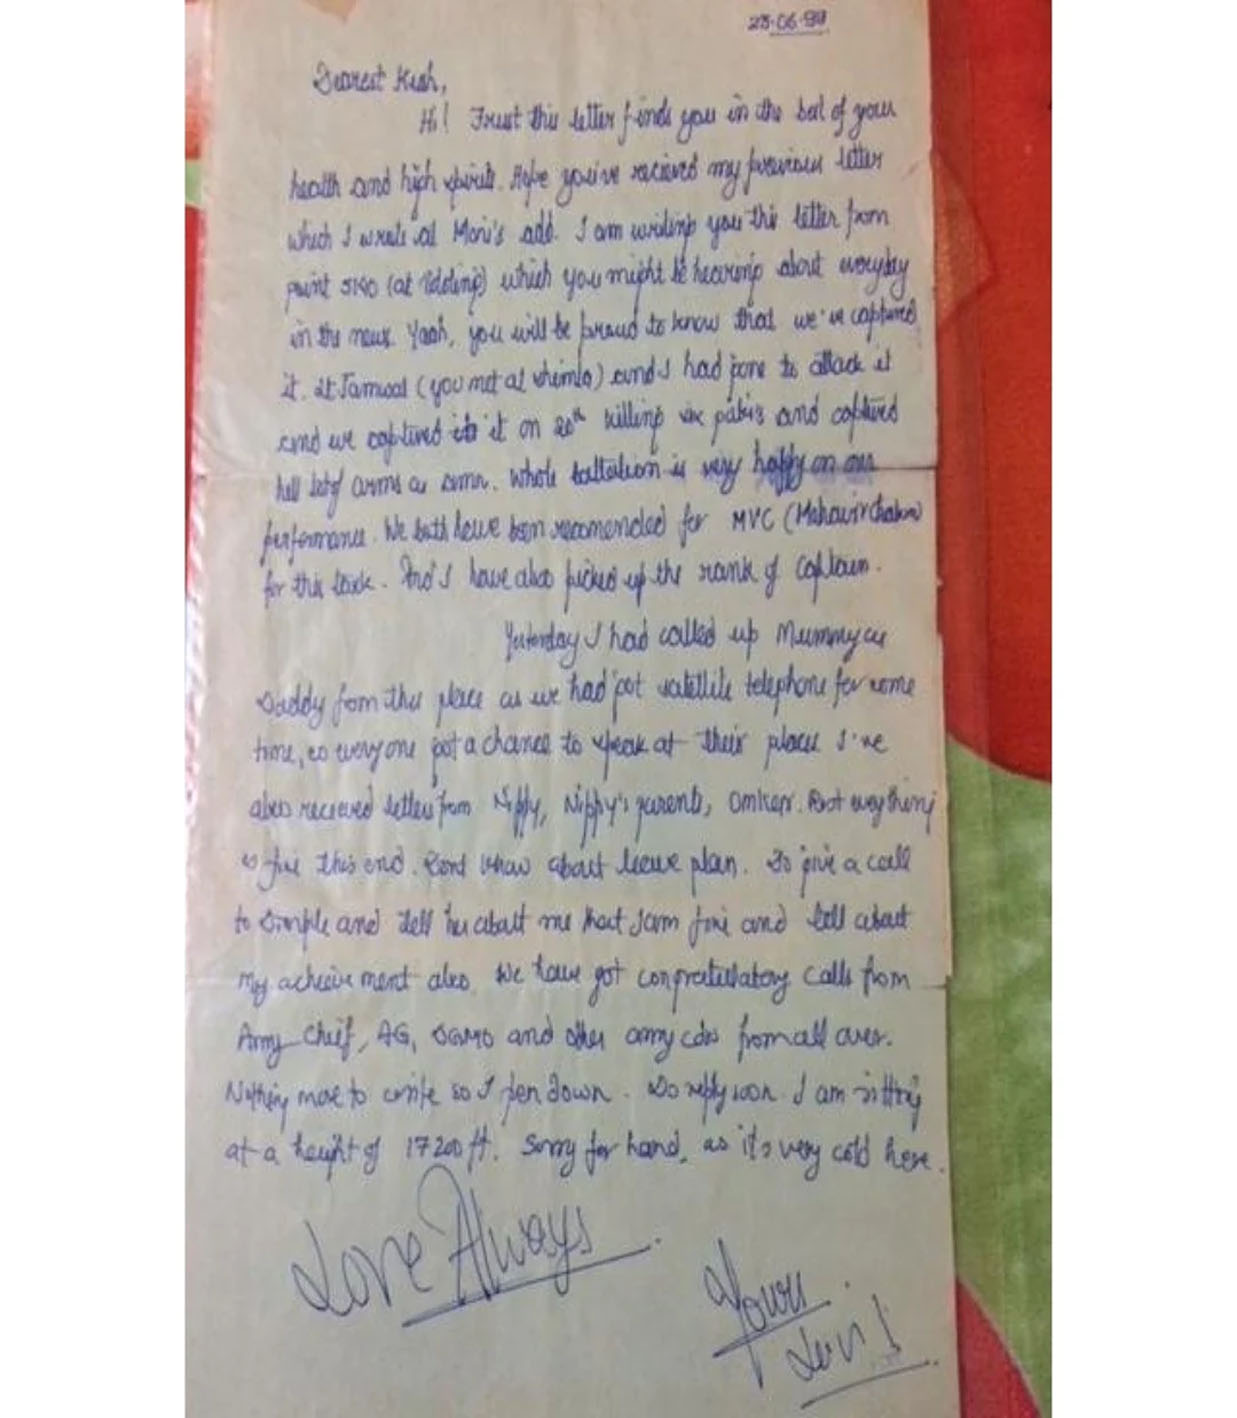 23-06-99
Dearest Kush,
Hi! Trust this letter finds you in the best of your
health and high spirits. Hope you've recieved my previous letter
which I wrote at Moni's add. I am writing you this letter from
point 5140 (at Tololing) which you might be hearing about everyday
in the news. Yaah, you will be proud to know that we've captured
it. Lt Jamwal (you met at Shimla) and I had gone to attack it
and we captured it on 20th killing six pakis and captured
hell lot of arms & ammn. Whole battalion is very happy on our
performance. We both have been recomended for MVC (Mahavir Chakra)
for this task. And I have also picked up the rank of Captain.
Yesterday I had called up Mummy &
Daddy from this place as we had got satellite telephone for some
time, so everyone got a chance to speak at their place I've
also recieved letters from Nippy, Nippy's parents, Omkar. Rest everything
is fine this end. Dont know about leave plan. Do give a call
to Dimple and tell her about me that I am fine and tell about
my acheivement also. We have got congratulatory calls from
Army Chief, AG, DGMO and other army cdrs from all over.
Nothing more to write so I pen down. Do reply soon. I am sitting
at a height of 17200 ft. Sorry for hand, as it's very cold here.
Love Always
Yours
Luv